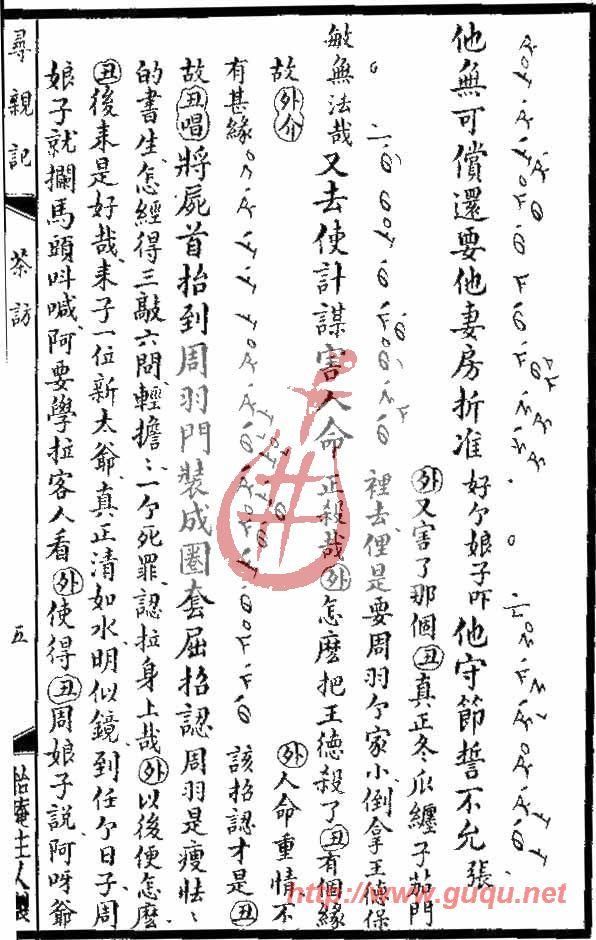 他無可償還要他妻房折准好个娘子吓他守節誓不允張
外又害了那個丑真正冬瓜纏子茄門
裡去俚是要周羽个家小倒拿王德保
敏無法哉又去使計謀害人命正殺哉外怎麼把王德殺了丑有個緣
故外介
外人命重情不
有甚緣
該招認才是丑
故丑唱將屍首抬到周羽門裝成圈套屈招認周羽是瘦怯〻
的書生怎經得三敲六問輕擔〻一个死罪認拉身上哉外以後便怎麼
丑後来是好哉来子一位新太爺真正清如水明似鏡到任个日子周
娘子就攔馬頭呌喊阿要學拉客人看外使得丑周娘子說阿呀爺
尋親記
茶訪
五
怡庵主人製
http://www.guqu.net